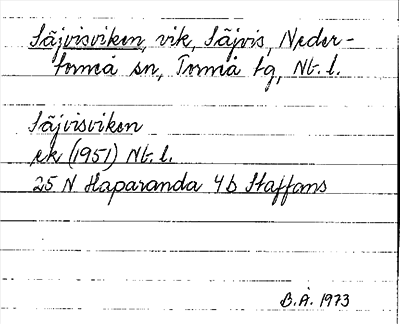 Säjvisviken, vik, Säjvis, Neder-
torneå sn, Torneå tg, Nb. l.
Säjvisviken
ek (1951) Nb. l.
25 N Haparanda 4b Staffans
B.Å. 1973